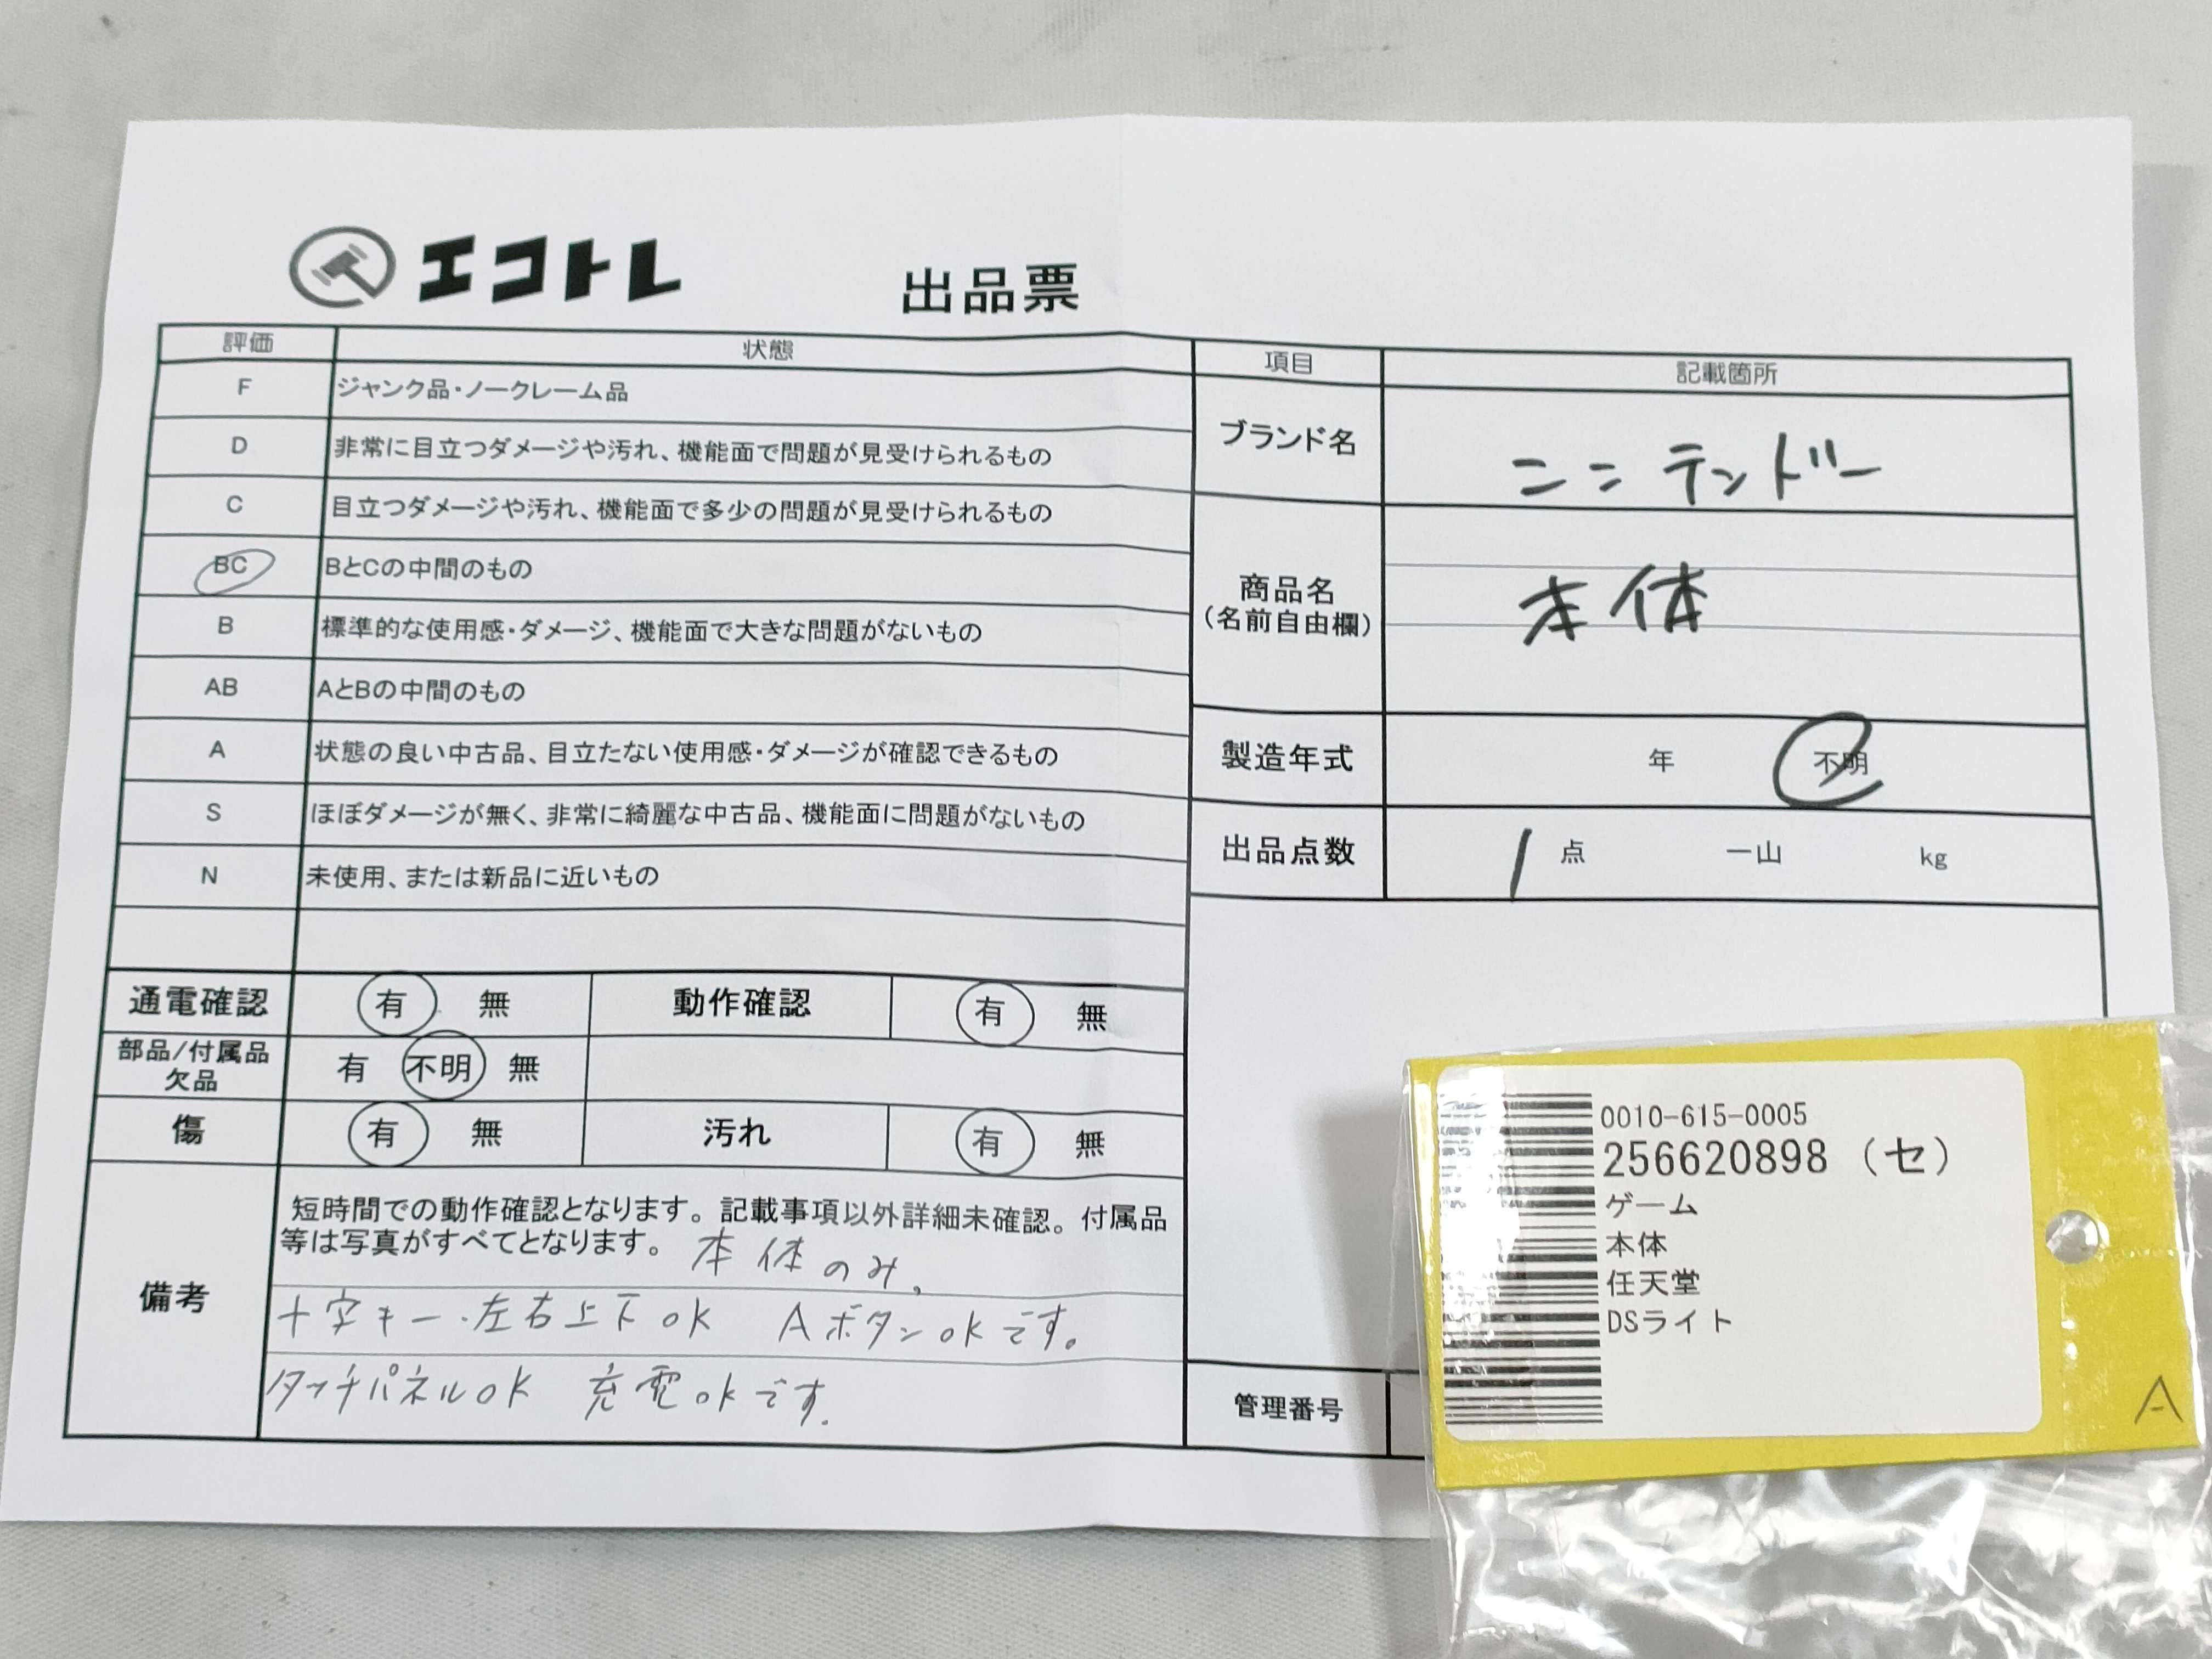 エコトレ
出品票
評価 状態
F ジャンク品・ノークレーム品
D 非常に目立つダメージや汚れ、機能面で問題が見受けられるもの
C 目立つダメージや汚れ、機能面で多少の問題が見受けられるもの
BC BとCの中間のもの
B 標準的な使用感・ダメージ、機能面で大きな問題がないもの
AB AとBの中間のもの
A 状態の良い中古品、目立たない使用感・ダメージが確認できるもの
S ほぼダメージが無く、非常に綺麗な中古品、機能面に問題がないもの
N 未使用、または新品に近いもの
通電確認 有 無 動作確認 有 無
部品/付属品
欠品
有 不明 無
傷 有 無 汚れ 有 無
備考
短時間での動作確認となります。記載事項以外詳細未確認。付属品
等は写真がすべてとなります。 本体のみ。
十字キー・左右上下ok Aボタンokです。
タッチパネルok 充電okです。
項目 記載箇所
ブランド名 ニンテンドー
商品名
(名前自由欄)
本体
製造年式 年 不明
出品点数 1 点 一山 kg
管理番号
0010-615-0005
256620898 (セ)
ゲーム
本体
任天堂
DSライト
A